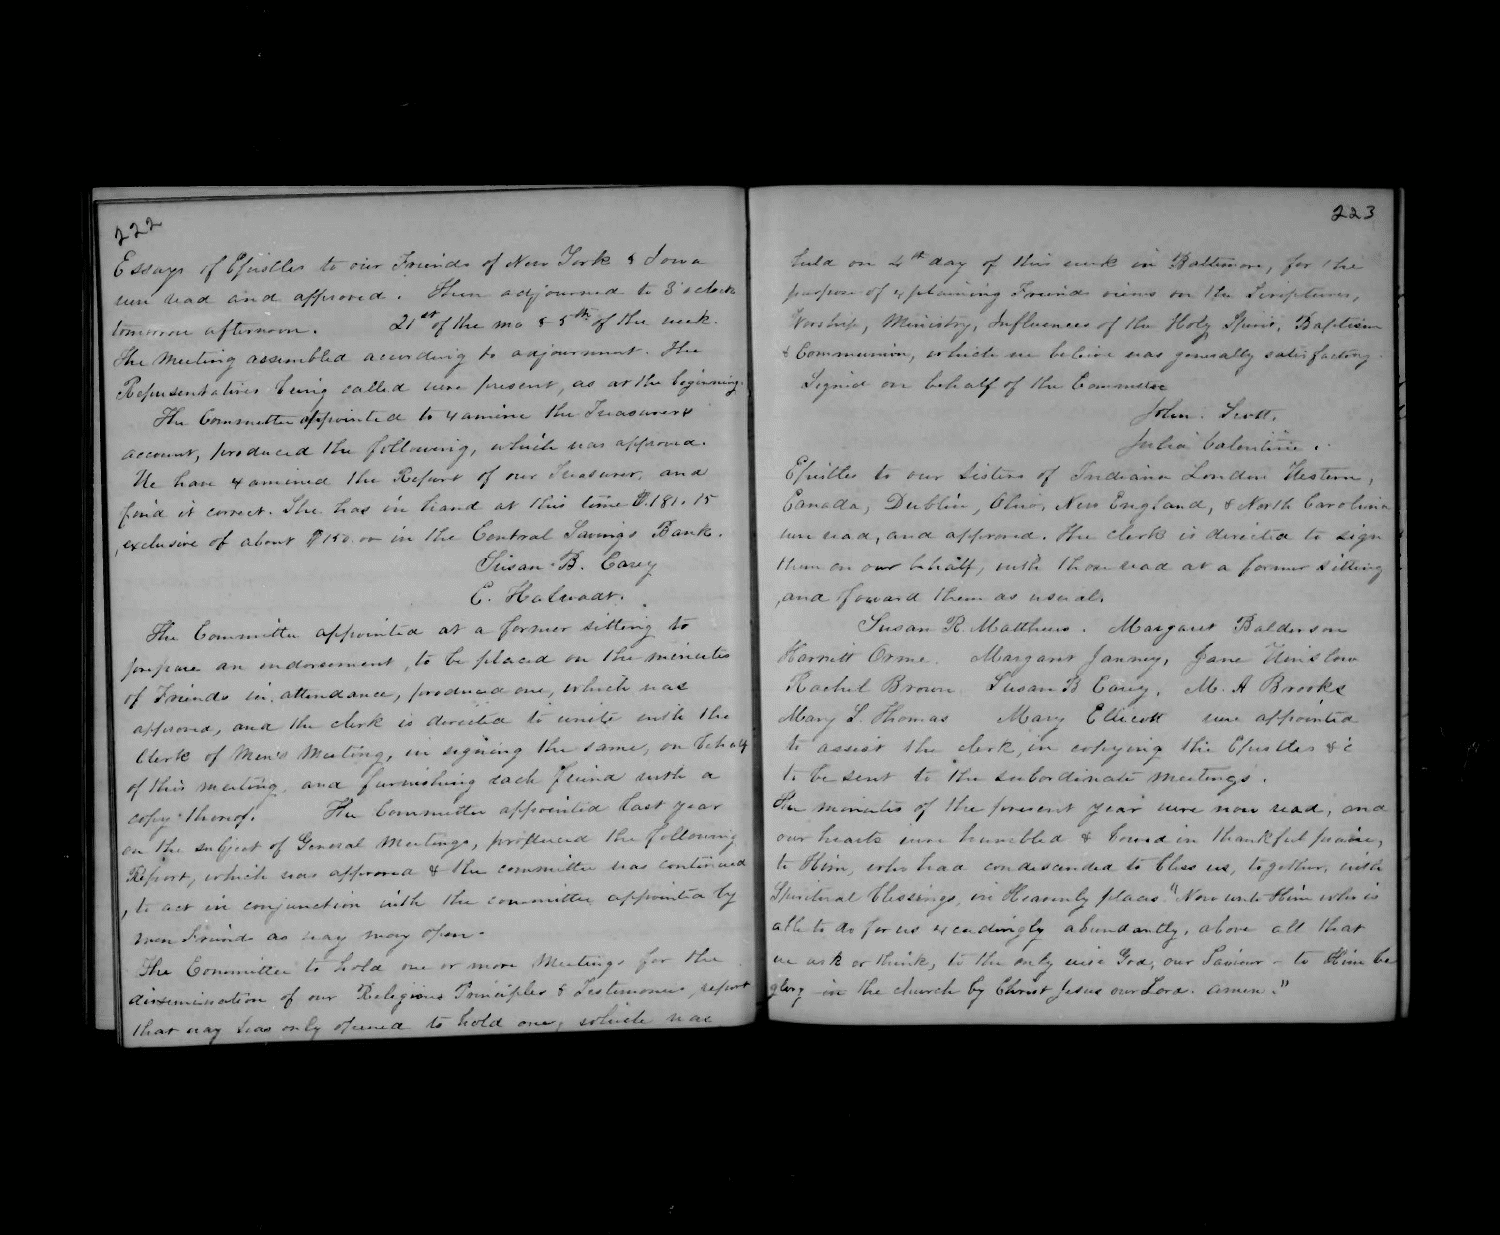 222
Essays of Epistles to our Friends of New York & Iowa
were read and approved. Then adjourned to 3 o'clock
tomorrow afternoon. 21st of the mo & 5th of the week.
The Meeting assembled according to adjournment. The
Representatives being called were present, as at the beginning.
The Committee appointed to examine the Treasurers
account, produced the following, which was approved.
We have examined the Report of our Treasurer, and
find it correct. She has in hand at this time $.181.15
, exclusive of about $150.00 in the Central Savings Bank.
Susan B. Carey
E.
The Committee appointed at a former sitting to
prepare an endorsement, to be placed on the minutes
of Friends in attendance, produced one, which was
approved, and the clerk is directed to unite with the
Clerk of Men's Meeting, in signing the same, on behalf
of this meeting, and furnishing each friend with a
copy thereof. The Committee appointed last year
on the subject of General Meetings, produced the following
Report, which was approved & the committee was continued
, to act in conjunction with the committee appointed by
men Friends as way may open.
The Committee to hold one or more Meetings for the
dissemination of our Religious Principles & Testimonies report
that way was only opened to hold one, which was
223
held on 4th day of this week in Baltimore, for the
purpose of explaining Friends views on the Scriptures,
Worship, Ministry, Influences of the Holy Spirit, Baptism
& Communion, which we believe was generally satisfactory.
Signed on behalf of the Committee
John Scott.
Julia Valentine.
Epistles to our Sisters of Indiana London Western,
Canada, Dublin, Ohio, New England, & North Carolina
were read, and approved. The clerk is directed to sign
them on our behalf, with those read at a former sitting
, and foward them as usual.
Susan R. Matthews. Margaret Balderson
Harriett Orme. Margaret Janney, Jane Winslow
Rachel Brown Susan B Carey, M. A Brooks
Mary S. Thomas Mary Ellicott were appointed
to assist the clerk, in copying the Epistles &'c
to be sent to the subordinate meetings.
The minutes of the present year were now read, and
our hearts were humbled & bowed in thankful praise,
to Him, who had condescended to bless us, together, with
Spiritual blessings, in Heavenly places. "Now unto Him who is
able to do for us exceedingly abundantly, above all that
we ask or think, to the only wise God, our Saviour - to Him be
glory in the church by Christ Jesus our Lord. Amen."